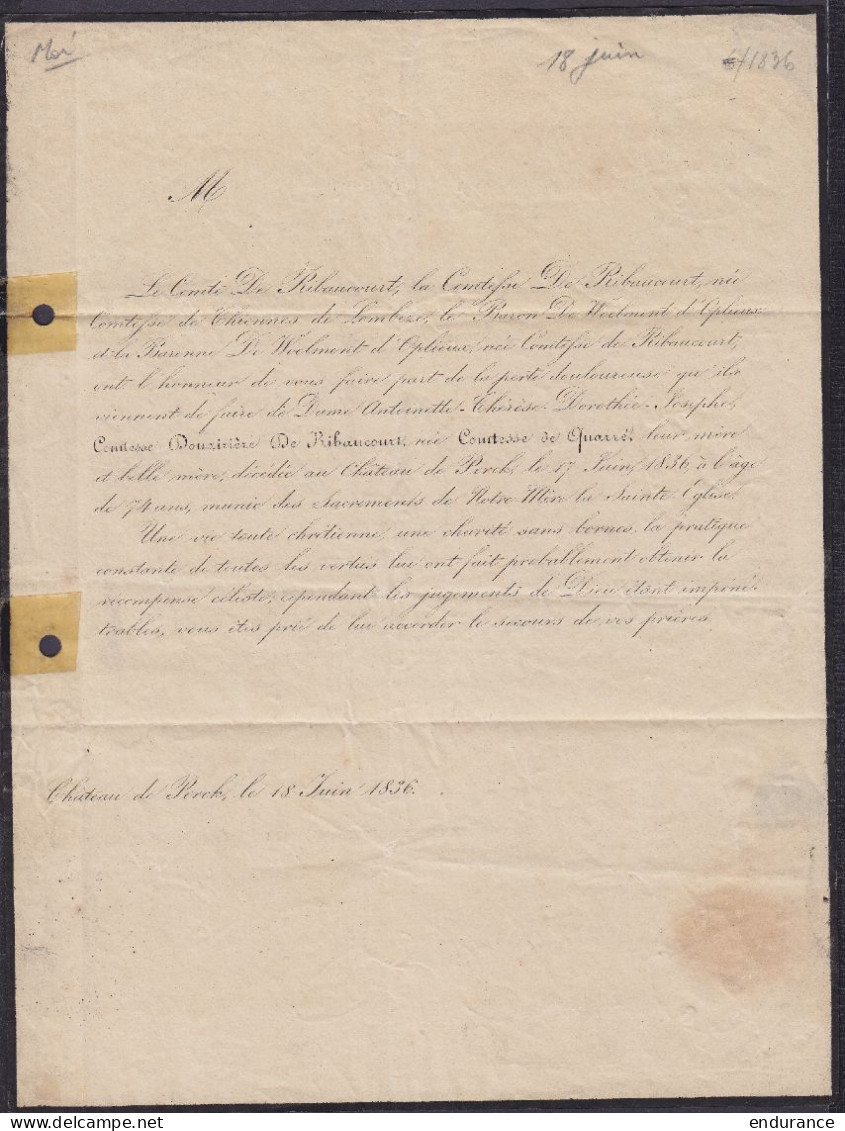 18 juin
6/1836
M
Le Comte De Ribaucourt, la Comtesse De Ribaucourt, née
Comtesse de Thiennes de Lombize, le Baron De Woelmont d'Opleeux
et la Baronne De Woelmont d'Opleeux, née Comtesse de Ribaucourt,
ont l'honneur de vous faire part de la perte douloureuse qu'ils
viennent de faire de Dame Antoinette-Thérèse-Dorothée-Josephe,
Comtesse Douairière De Ribaucourt, née Comtesse de Quarré, leur mère
et belle mère, décédée au Château de Perck, le 17 Juin 1836, à l'âge
de 74 ans, munie des Sacrements de Notre Mère la Sainte Eglise.
Une vie toute chrétienne, une charité sans bornes, la pratique
constante de toutes les vertus lui ont fait probablement obtenir la
récompense céleste; cependant les jugements de Dieu étant impéné-
trables, vous êtes prié de lui accorder le secours de vos prières.
Château de Perck, le 18 Juin 1836.
www.delcampe.net
endurance